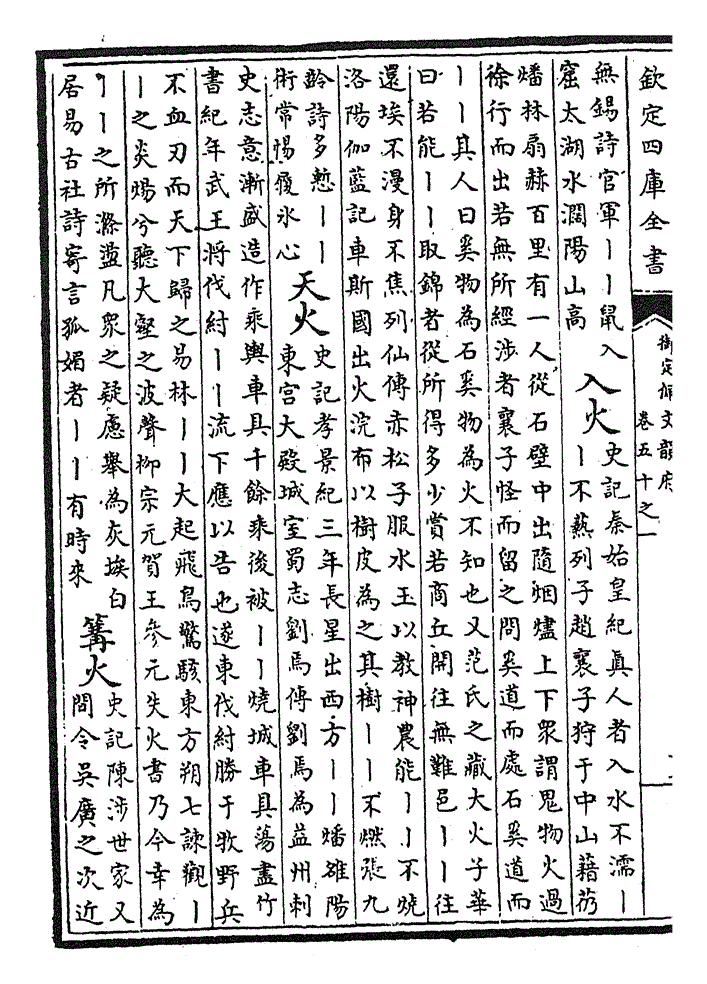 欽定四庫全書
御定佩文韻府
卷五十之一
無錫詩官軍丨丨鼠入
窟太湖水濶陽山高
入火
史記秦始皇紀真人者入水不濡丨
丨不熱列子趙襄子狩于中山藉芿
燔林扇赫百里有一人從石壁中出隨烟燼上下衆謂鬼物火過
徐行而出若無所經涉者襄子怪而留之問奚道而處石奚道而
丨丨其人曰奚物為石奚物為火不知也又范氏之藏大火子華
曰若能丨丨取錦者從所得多少賞若商丘開往無難邑丨丨往
還埃不漫身不焦列仙傳赤松子服水玉以教神農能丨丨不燒
洛陽伽藍記車斯國出火浣布以樹皮為之其樹丨丨不燃張九
齡詩多慙丨丨
術常惕履氷心
天火
史記孝景紀三年長星出西方丨丨燔雒陽
東宮大殿城室蜀志劉焉傳劉焉為益州刺
史志意漸盛造作乘輿車具千餘乘後被丨丨燒城車具蕩盡竹
書紀年武王將伐紂丨丨流下應以告也遂東伐紂勝于牧野兵
不血刃而天下歸之易林丨丨大起飛鳥驚駭東方朔七諫觀丨
丨之炎煬兮聽大壑之波聲柳宗元賀王參元失火書乃今幸為
丨丨之所滌盪凡衆之疑慮舉為灰埃白
居易古社詩寄言狐媚者丨丨有時來
篝火
史記陳涉世家又
間令吳廣之次近